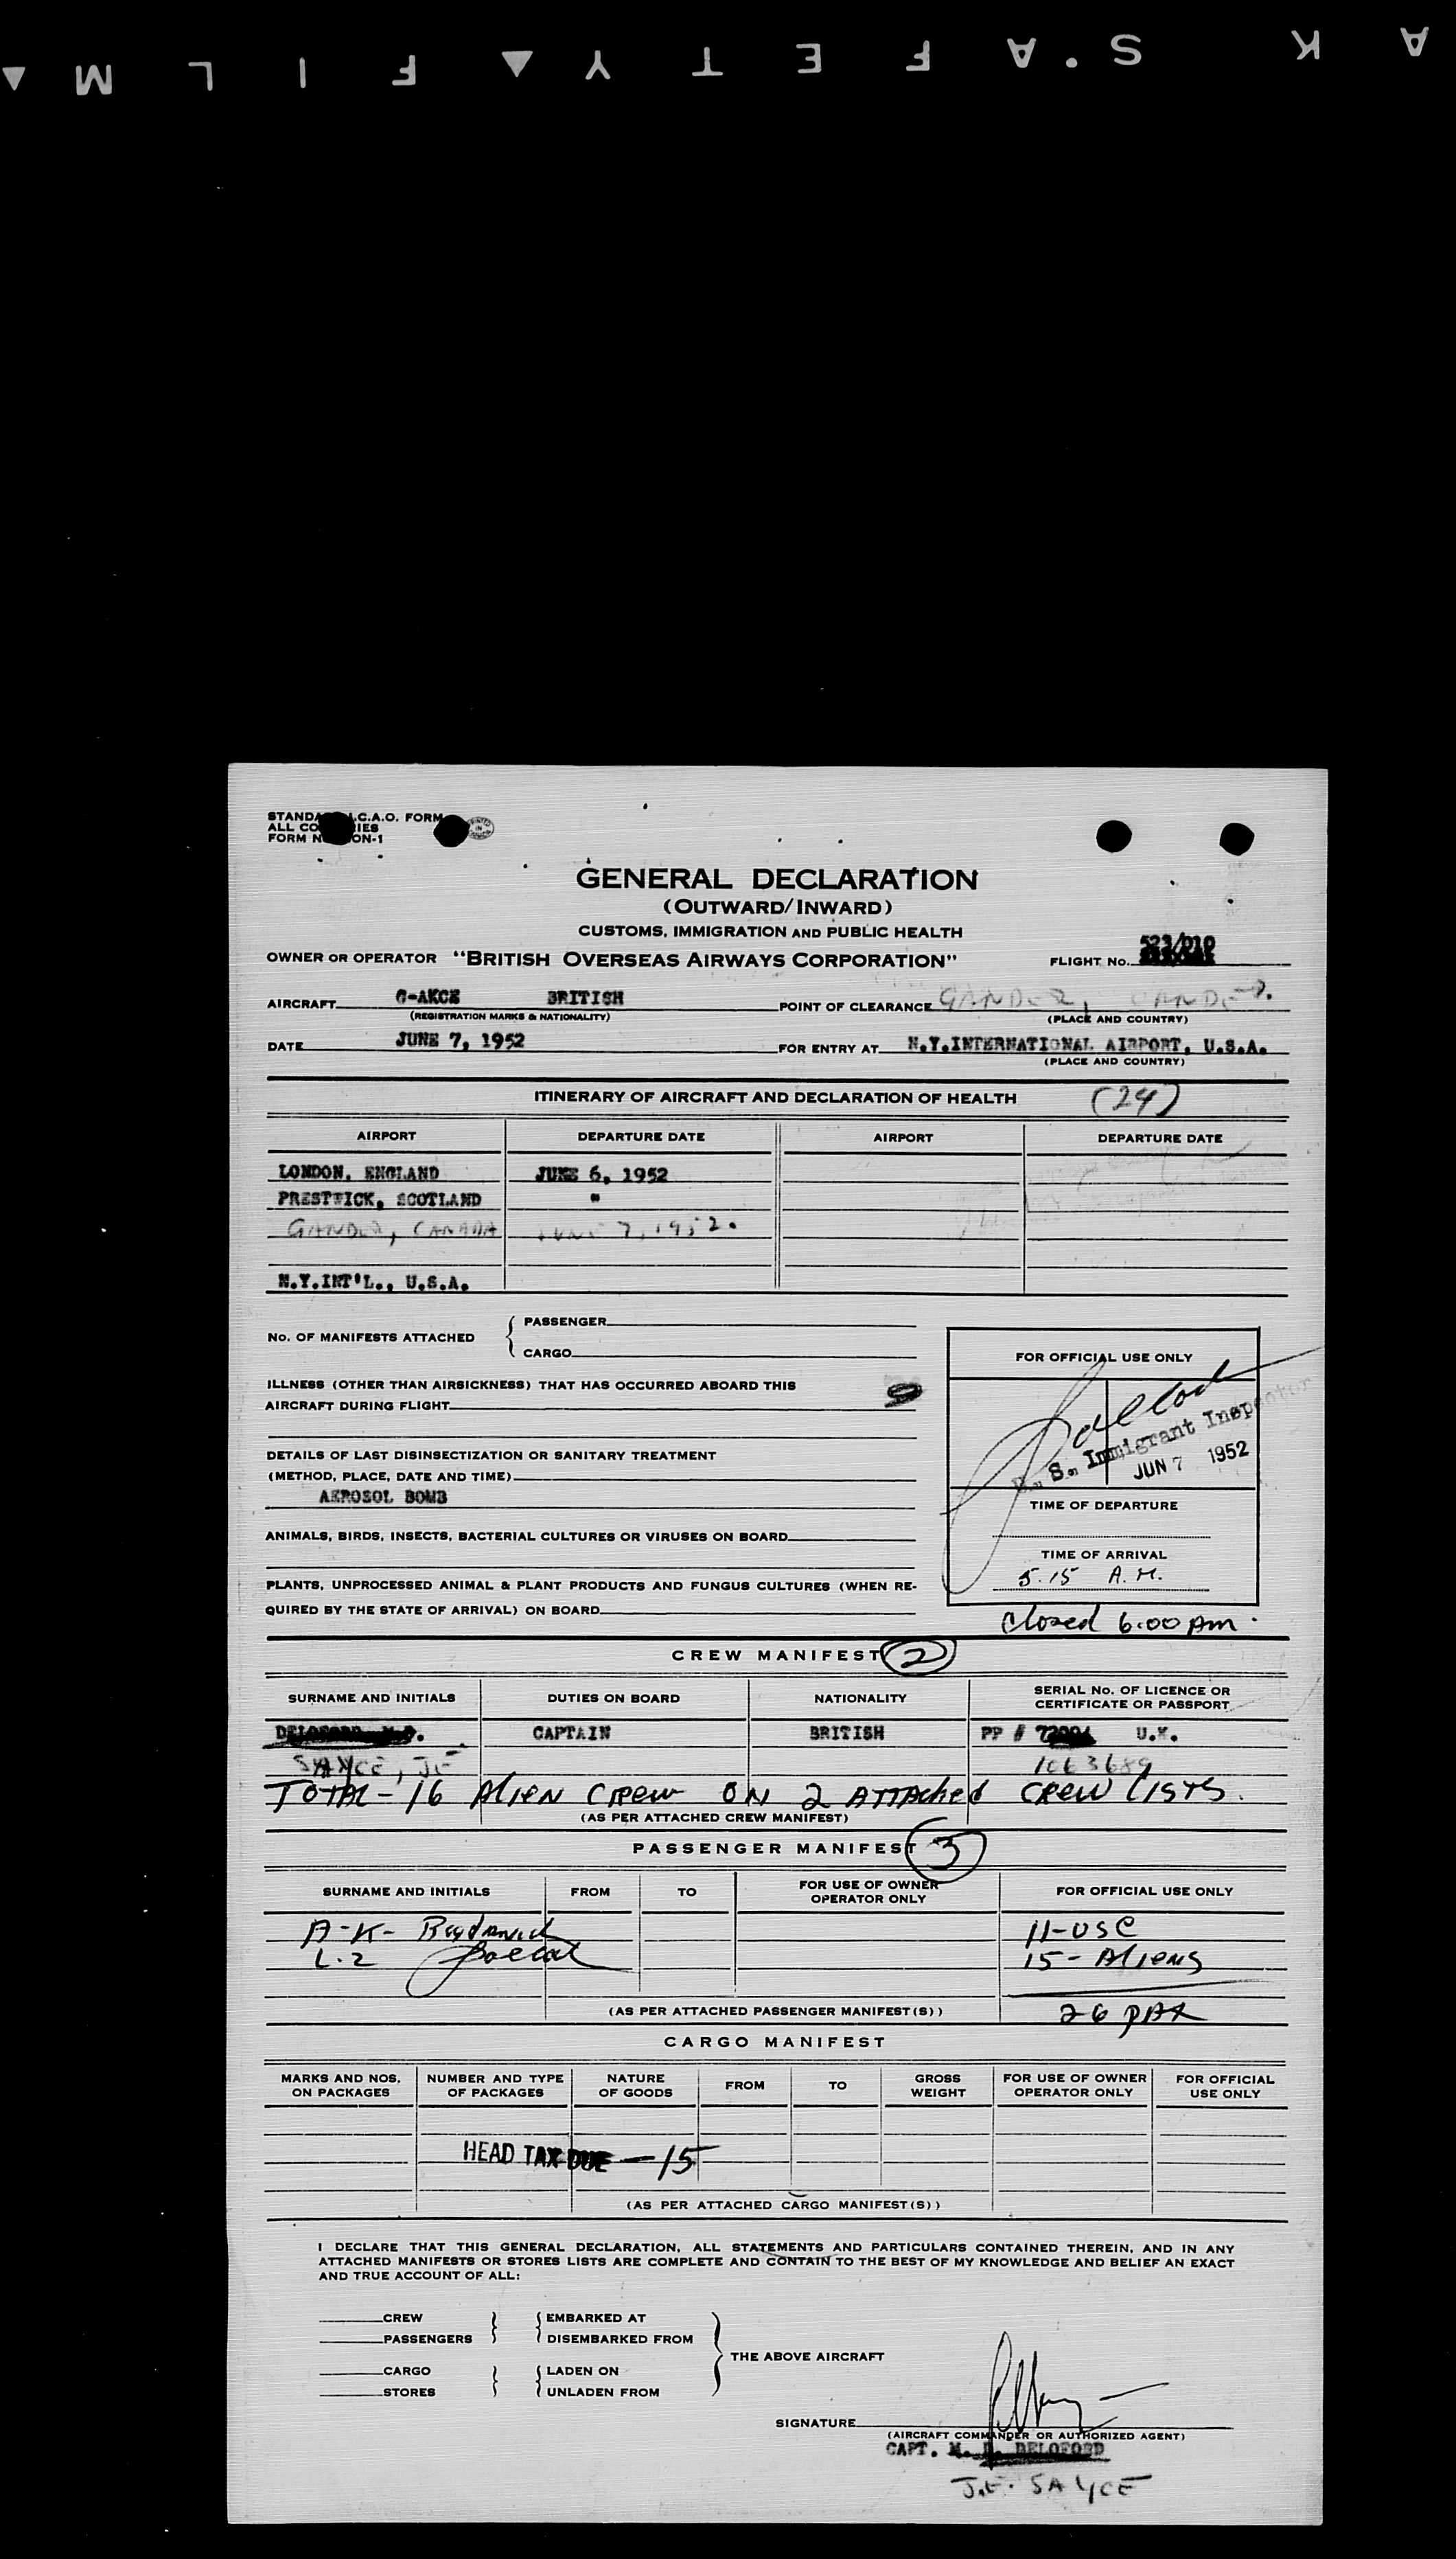 SAFETY FILM
STANDA I.C.A.O. FORM
ALL CO IES
FORM N ON-1
GENERAL DECLARATION
(OUTWARD/INWARD)
CUSTOMS, IMMIGRATION AND PUBLIC HEALTH
OWNER OR OPERATOR "BRITISH OVERSEAS AIRWAYS CORPORATION" FLIGHT No. 523/010
AIRCRAFT G-AKCE BRITISH POINT OF CLEARANCE GANDER,
(REGISTRATION MARKS & NATIONALITY) (PLACE AND COUNTRY)
DATE JUNE 7, 1952 FOR ENTRY AT N.Y.INTERNATIONAL AIRPORT, U.S.A.
(PLACE AND COUNTRY)
ITINERARY OF AIRCRAFT AND DECLARATION OF HEALTH (24)
AIRPORT DEPARTURE DATE AIRPORT DEPARTURE DATE
LONDON, ENGLAND JUNE 6, 1952
PRESTWICK, SCOTLAND "
GANDER, CANADA JUNE 7, 1952.
N.Y.INT'L., U.S.A.
No. OF MANIFESTS ATTACHED { PASSENGER
CARGO
ILLNESS (OTHER THAN AIRSICKNESS) THAT HAS OCCURRED ABOARD THIS
AIRCRAFT DURING FLIGHT
DETAILS OF LAST DISINSECTIZATION OR SANITARY TREATMENT
(METHOD, PLACE, DATE AND TIME)
AEROSOL BOMB
ANIMALS, BIRDS, INSECTS, BACTERIAL CULTURES OR VIRUSES ON BOARD
PLANTS, UNPROCESSED ANIMAL & PLANT PRODUCTS AND FUNGUS CULTURES (WHEN RE-
QUIRED BY THE STATE OF ARRIVAL) ON BOARD
FOR OFFICIAL USE ONLY
U. S. Immigrant Inspector
JUN 7 1952
TIME OF DEPARTURE
TIME OF ARRIVAL
5.15 A.M.
Closed 6:00 am.
CREW MANIFEST 2
SURNAME AND INITIALS DUTIES ON BOARD NATIONALITY SERIAL No. OF LICENCE OR
CERTIFICATE OR PASSPORT
DELOFORD M.D. CAPTAIN BRITISH PP # U.K.
SAYCE, J.E 1063689
TOTAL - 16 Alien Crew ON 2 ATTAched Crew Lists.
(AS PER ATTACHED CREW MANIFEST)
PASSENGER MANIFEST 3
SURNAME AND INITIALS FROM TO FOR USE OF OWNER
OPERATOR ONLY FOR OFFICIAL USE ONLY
A-K- 11-USC
L-2 15-Aliens
(AS PER ATTACHED PASSENGER MANIFEST(S)) 26 PAX
CARGO MANIFEST
MARKS AND NOS.
ON PACKAGES NUMBER AND TYPE
OF PACKAGES NATURE
OF GOODS FROM TO GROSS
WEIGHT FOR USE OF OWNER
OPERATOR ONLY FOR OFFICIAL
USE ONLY
HEAD TAX DUE - 15
(AS PER ATTACHED CARGO MANIFEST(S))
I DECLARE THAT THIS GENERAL DECLARATION, ALL STATEMENTS AND PARTICULARS CONTAINED THEREIN, AND IN ANY
ATTACHED MANIFESTS OR STORES LISTS ARE COMPLETE AND CONTAIN TO THE BEST OF MY KNOWLEDGE AND BELIEF AN EXACT
AND TRUE ACCOUNT OF ALL:
CREW EMBARKED AT
PASSENGERS DISEMBARKED FROM
THE ABOVE AIRCRAFT
CARGO LADEN ON
STORES UNLADEN FROM
SIGNATURE
(AIRCRAFT COMMANDER OR AUTHORIZED AGENT)
CAPT. M. D. DELOFORD
J.E. SAYCE